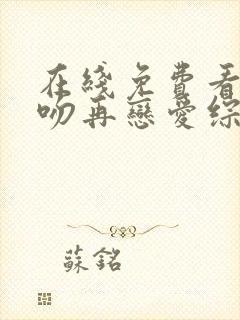 在綫免費看
吻再戀愛綜
蘇銘